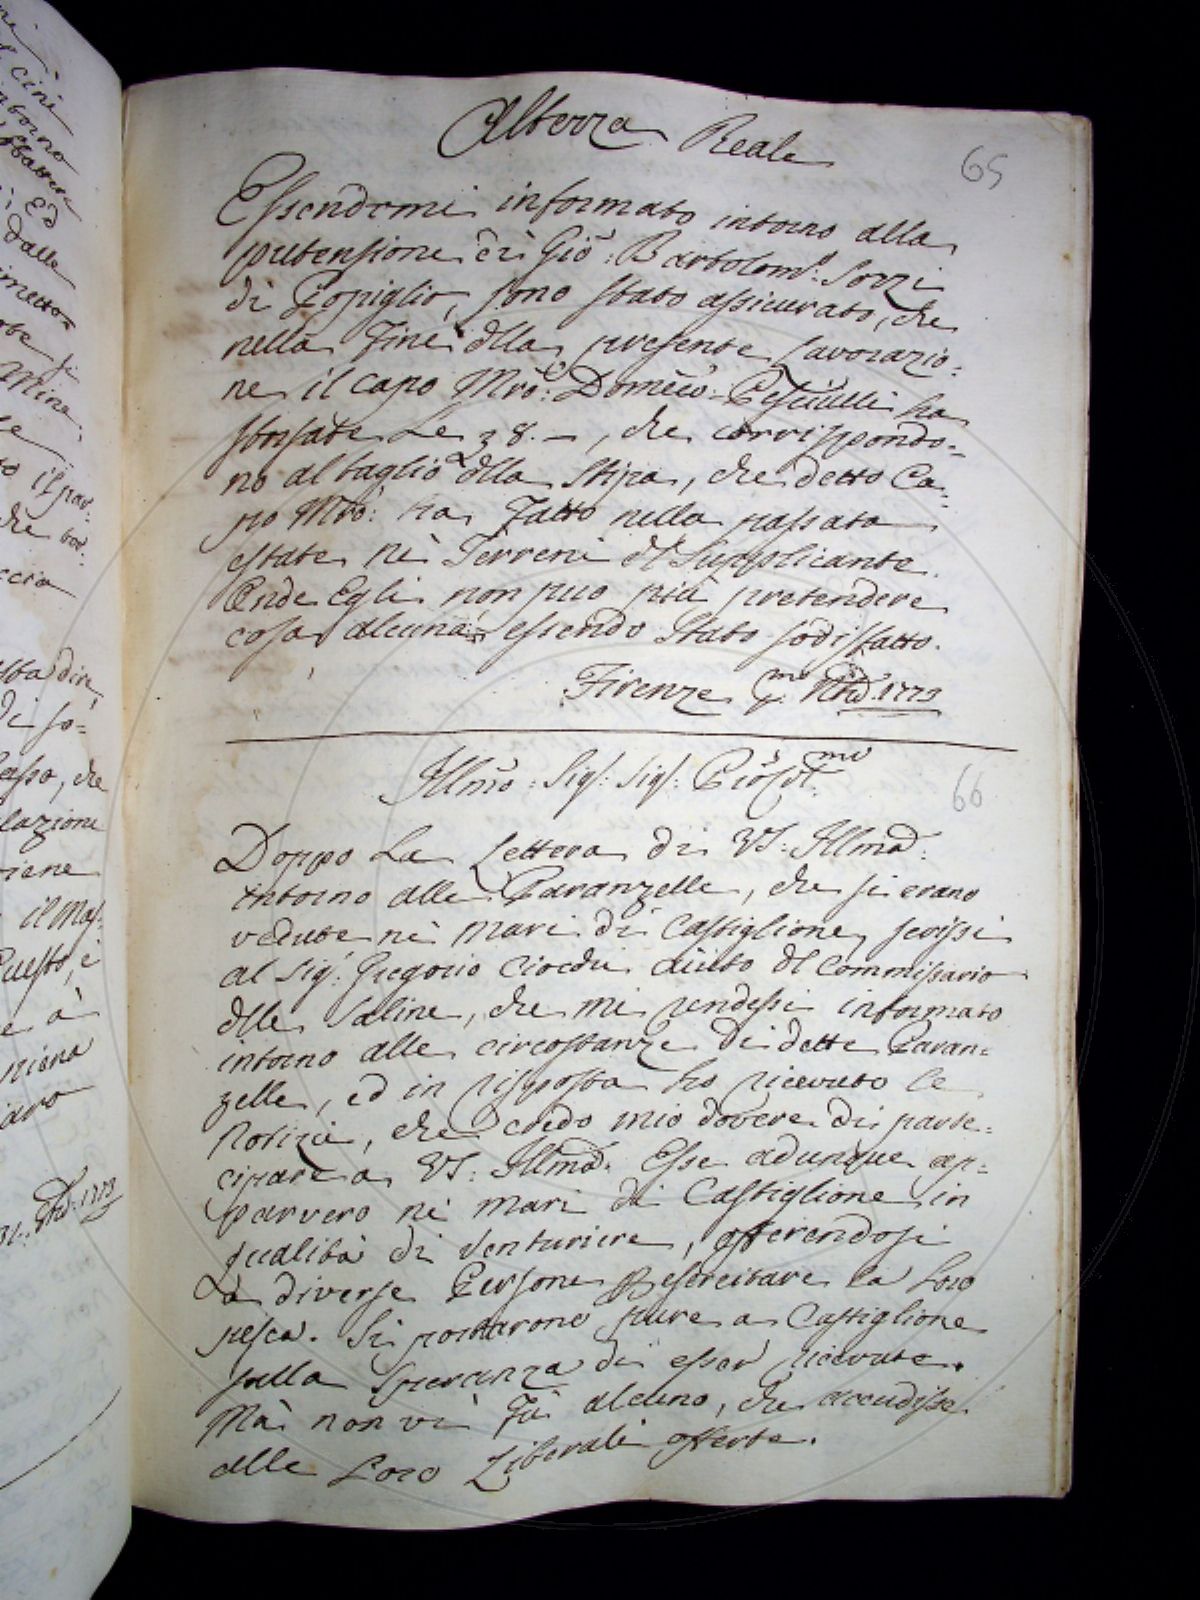 ni
cini
intorno
ed
dalle
Mine:
che
eccia
Altezza Reale
65
Essendomi informato intorno alla
pretensione di Gio: Bartolom: Sozzi
di Popiglio, sono stato assicurato, che
nella fine dlla presente lavorazio-
ne il capo Mro: Domco:
sborsate Le 38.—, che corrispondo-
no al taglio dlla Stipa, che detto Ca-
po Mro: ha fatto nella passata
estate nè Terreni dl Supplicante.
Onde Egli non puo più pretendere
cosa alcuna essendo stato sodisfatto.
Firenze pmo 1773
Illmo: Sig: Sig: Prōe Colmo
66
Doppo la Lettera di VS: Illma:
intorno alle Paranzelle, che si erano
vedute nè mari di Castiglione scrissi
al Sig: Gregorio Ciocchi aiuto dl Commissario
dlle Saline, che mi rendessi informato
intorno alle circostanze di dette Paran-
zelle, ed in risposta ho ricevuto le
Notizie, che credo mio dovere di parte-
cipare a VS: Illma: Esse adunque ap-
parvero nè mari di Castiglione in
qualità di Venturiere, offerendosi
à diverse Persone p esercitare la loro
pesca. Si portarono pure a Castiglione
sulla speranza di esser ricevute.
Mà non vi fù alcuno, che accudisse
alle Loro Liberali offerte.
di so-
che
lazione
viene
il Mas-
Questo, è
e à
1773